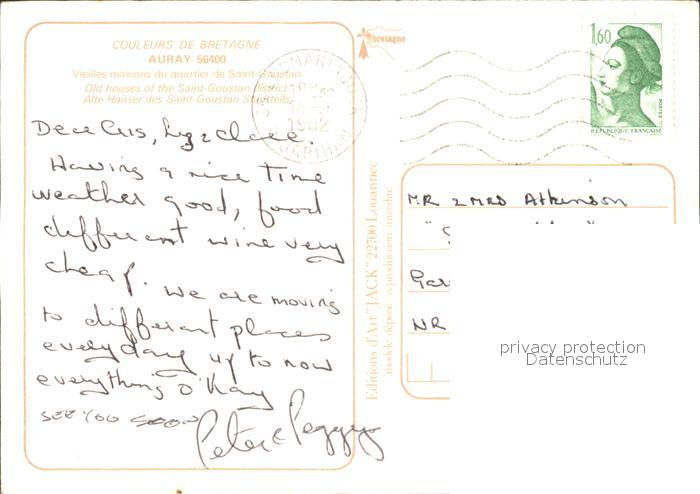 COULEURS DE BRETAGNE
AURAY 56400
Vieilles maisons du quartier de Saint-Goustan
Old houses of the Saint-Goustan district
Alte Haüser des Saint-Goustan Stadtteils
bretagne
1982
MORBIHAN
1,60
POSTES
REPUBLIQUE FRANÇAISE
Dear Gus,
Having a nice time
weather good, food
different wine very
cheap. We are moving
to different places
everyday up to now
everything O'Kay
SEE YOU SOON
Peter & Peggy
Editions d'Art "JACK" 22700 Louannec
modèle déposé reproduction interdite
MR & MRS Atkinson
NR
privacy protection
Datenschutz